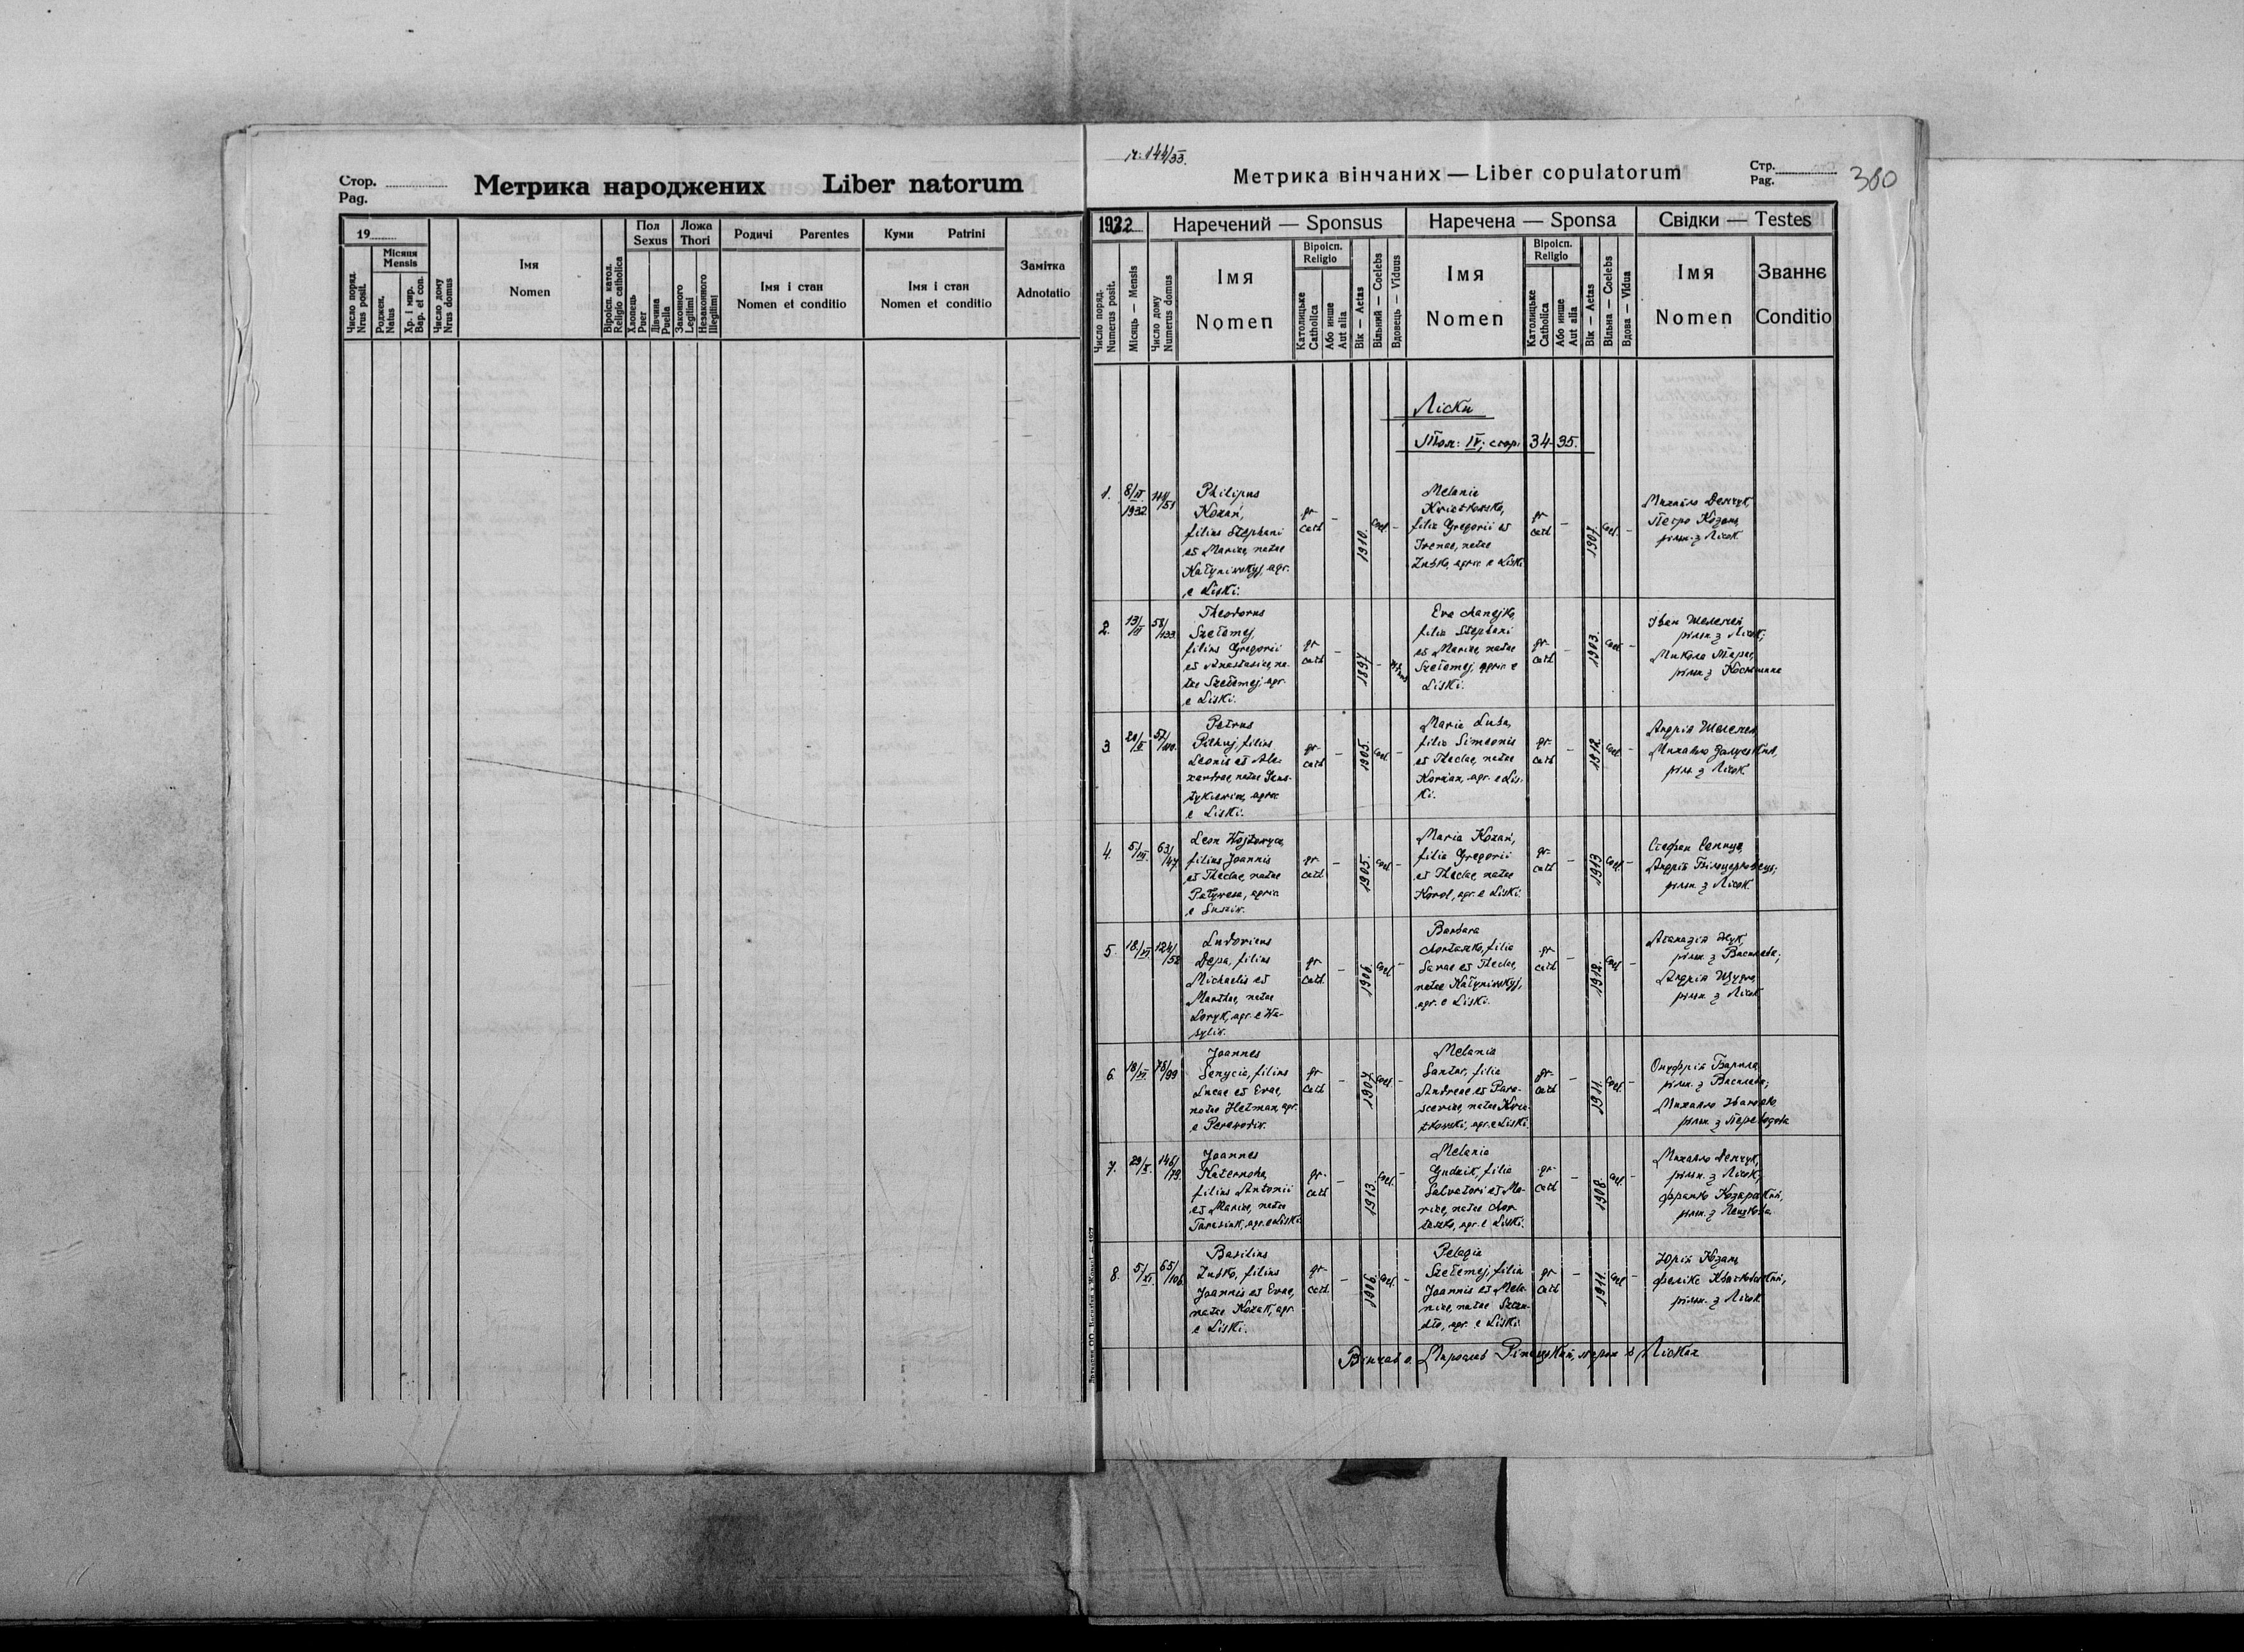 Стор.
Pag.
Метрика народжених Liber natorum
19
Число поряд.
Nrus posit.
Місяця
Mensis
Роджен.
Natus
Хр. і мир.
Bap. et con.
Число дому
Nrus domus
Імя
Nomen
Віроісп. катол.
Religio catholica
Пол
Sexus
Хлопець
Puer
Дівчина
Puella
Ложа
Thori
Законного
Legitimi
Незаконного
Illegitimi
Родичі Parentes
Імя і стан
Nomen et conditio
Куми Patrini
Імя і стан
Nomen et conditio
Замітка
Adnotatio
ч. 144/33.
Метрика вінчаних — Liber copulatorum
Стр.
Pag.
380
1932
Наречений — Sponsus
Наречена — Sponsa
Свідки — Testes
Число поряд.
Numerus posit.
Місяць — Mensis
Число дому
Numerus domus
Імя
Nomen
Віроісп.
Religio
Католицьке
Catholica
Або инше
Aut alia
Вік — Aetas
Вільний — Coelebs
Вдовець — Viduus
Імя
Nomen
Віроісп.
Religio
Католицьке
Catholica
Або инше
Aut alia
Вік — Aetas
Вільна — Coelebs
Вдова — Vidua
Імя
Nomen
Званнє
Conditio
Ліски
Том: IV; стор. 34-35.
1.
8/II.
1932
144/51
Philipus
Kozań,
filius Stephani
et Mariae, natae
Katyniwskyj, agr.
e Liski.
gr.
cath
–
1910.
coel
–
Melania
Kwiatkowska,
filia Gregorii et
Irenae, natae
Zusko, agric. e Liski
gr.
cath
–
1907.
coel.
–
Михайло Демчук,
Петро Козань,
рільн. з Лісок
2.
13/II
58/133
Theodorus
Szełemej,
filius Gregorii
et Anastasiae, na-
tae Szełemej, agr.
e Liski.
gr.
cath
–
1897
–
Eva
filia Stephani
et Mariae, natae
Szełemej, agric. e
Liski.
gr.
cath
–
1903.
coel
–
Іван Шелемей,
рільн. з Лісок;
Микола
рільн. з
3.
57/110.
Petrus
filius
Leonis et Ale-
xandrae, natae
agric.
e Liski.
gr.
cath
–
1905.
coel.
–
Maria Luba,
filia Simeonis
et Theclae, natae
agr. e Lis-
ki.
gr.
cath
–
1912.
coel
–
Андрій Шелемей,
Михайло
рільн. з Лісок
4.
5/III.
63/47
Leon Wojtowycz,
filius Joannis
et Theclae, natae
agric.
e
gr.
cath.
–
1905.
coel
–
Maria Kozań,
filia Gregorii
et Theclae, natae
Korol, agr. e Liski.
gr.
cath
–
1913
coel.
–
Стефан Сениця,
Андрій Білоцерковець;
рільн. з Лісок.
5.
18/VI
124/52
Ludovicus
Depa, filius
Michaelis et
Marthae, natae
agr. e Wa-
syliw.
gr.
cath.
–
1906.
coel
–
Barbara
filia
Savae et Theclae,
natae Katyniwskyj,
agr. e Liski.
gr.
cath
–
1912.
coel
–
Атаназій
рільн. з Василева;
Андрій
рільн. з Лісок
6.
18/VI
78/99
Joannes
Senycia, filius
Lucae et Evae,
natae Hetman, agr.
e Perewodiw.
gr.
cath
–
1907.
coel
–
Melania
Santar, filia
Andreae et Para-
sceviae, natae Kwia-
tkowski, agr. e Liski.
gr.
cath
–
1911.
coel.
–
Онуфрій Барила
рільн. з Василева;
Михайло Іванейко
рільн. з Переводова
7.
29/X.
146/79.
Joannes
Katernoha,
filius Antonii
et Mariae, natae
Tarasiuk, agr. e Liski.
gr.
cath
–
1913.
coel.
–
Melania
Gudzik, filia
Salvatori et Ma-
riae, natae
agr. e Liski.
gr.
cath
–
1908.
coel.
–
Михайло Демчук,
рільн. з Лісок;
Франко
рільн. з
8.
5/XI.
65/106
Basilius
Zusko, filius
Joannis et Evae,
natae Kozak, agr.
e Liski.
gr.
cath.
–
1906.
coel
–
Pelagia
Szełemej, filia
Joannis et Mela-
niae, natae
agr. e Liski.
gr.
cath
–
1911.
coel
–
Юрій Козань,
Фелікс Квятковський,
рільн. з Лісок
Вінчав о. Мирослав Ріпецький, парох в Лісках